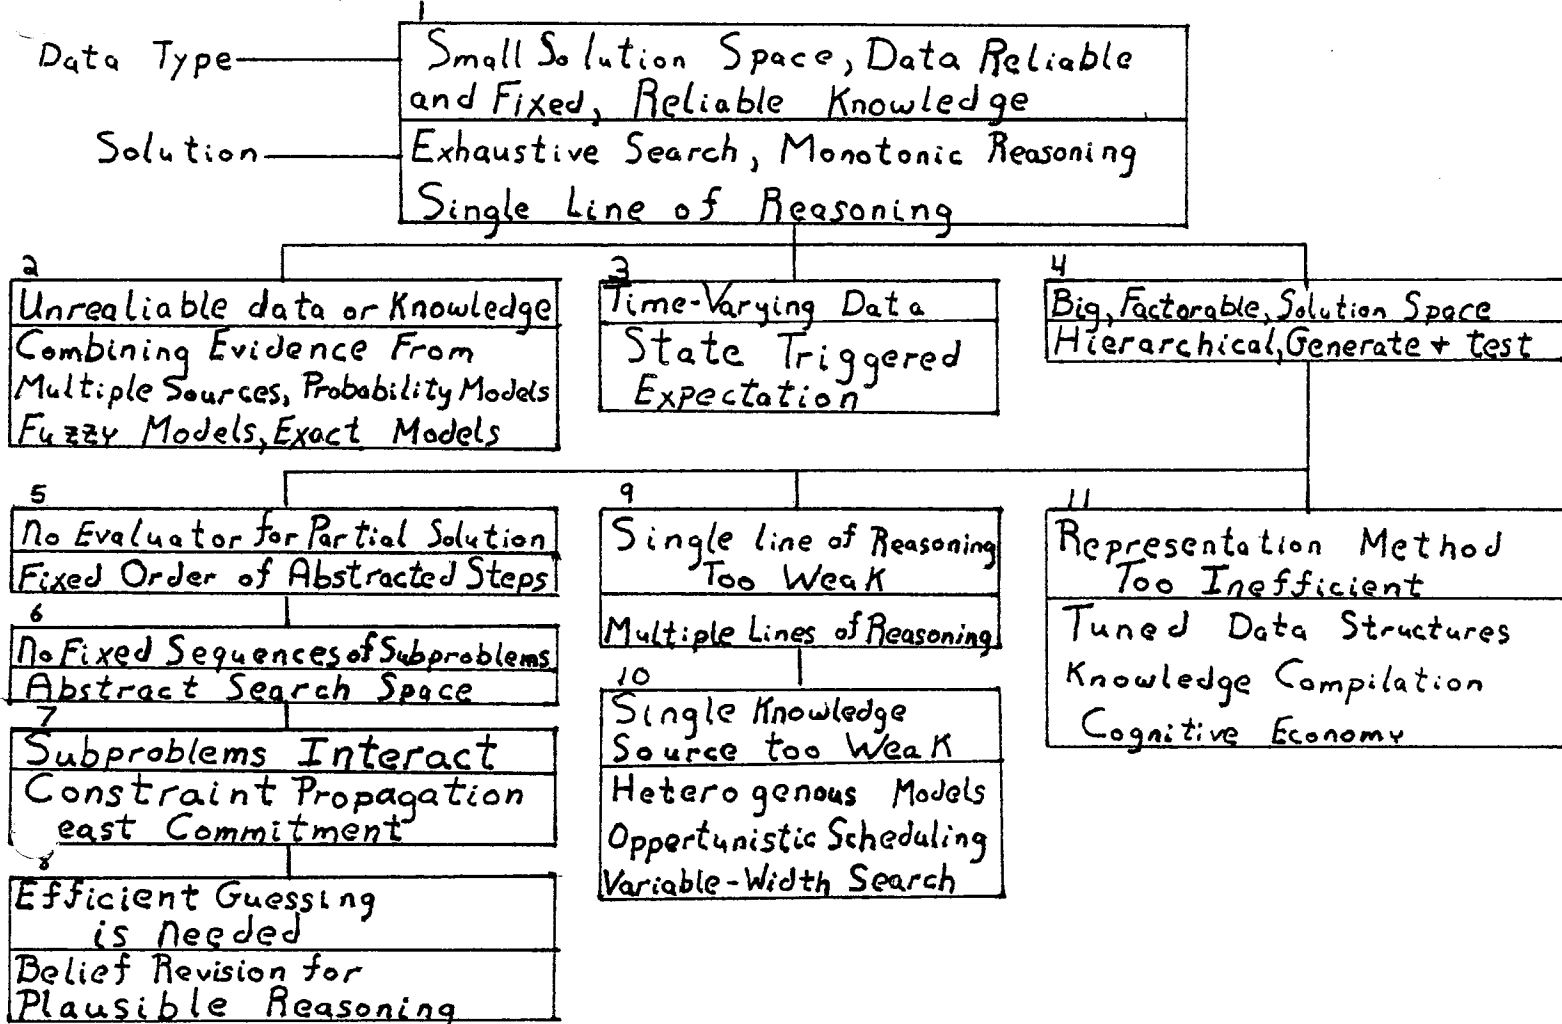 1
Data Type
Small Solution Space, Data Reliable
and Fixed, Reliable Knowledge
Solution
Exhaustive Search, Monotonic Reasoning
Single Line of Reasoning
2
Unrealiable data or Knowledge
Combining Evidence From
Multiple Sources, Probability Models
Fuzzy Models, Exact Models
3
Time-Varying Data
State Triggered
Expectation
4
Big, Factorable, Solution Space
Hierarchical, Generate + test
5
No Evaluator for Partial Solution
Fixed Order of Abstracted Steps
6
No Fixed Sequences of Subproblems
Abstract Search Space
7
Subproblems Interact
Constraint Propagation
east Commitment
8
Efficient Guessing
is needed
Belief Revision for
Plausible Reasoning
9
Single line of Reasoning
Too Weak
Multiple Lines of Reasoning
10
Single Knowledge
Source too Weak
Heterogenous Models
Oppertunistic Scheduling
Variable-Width Search
11
Representation Method
Too Inefficient
Tuned Data Structures
Knowledge Compilation
Cognitive Economy